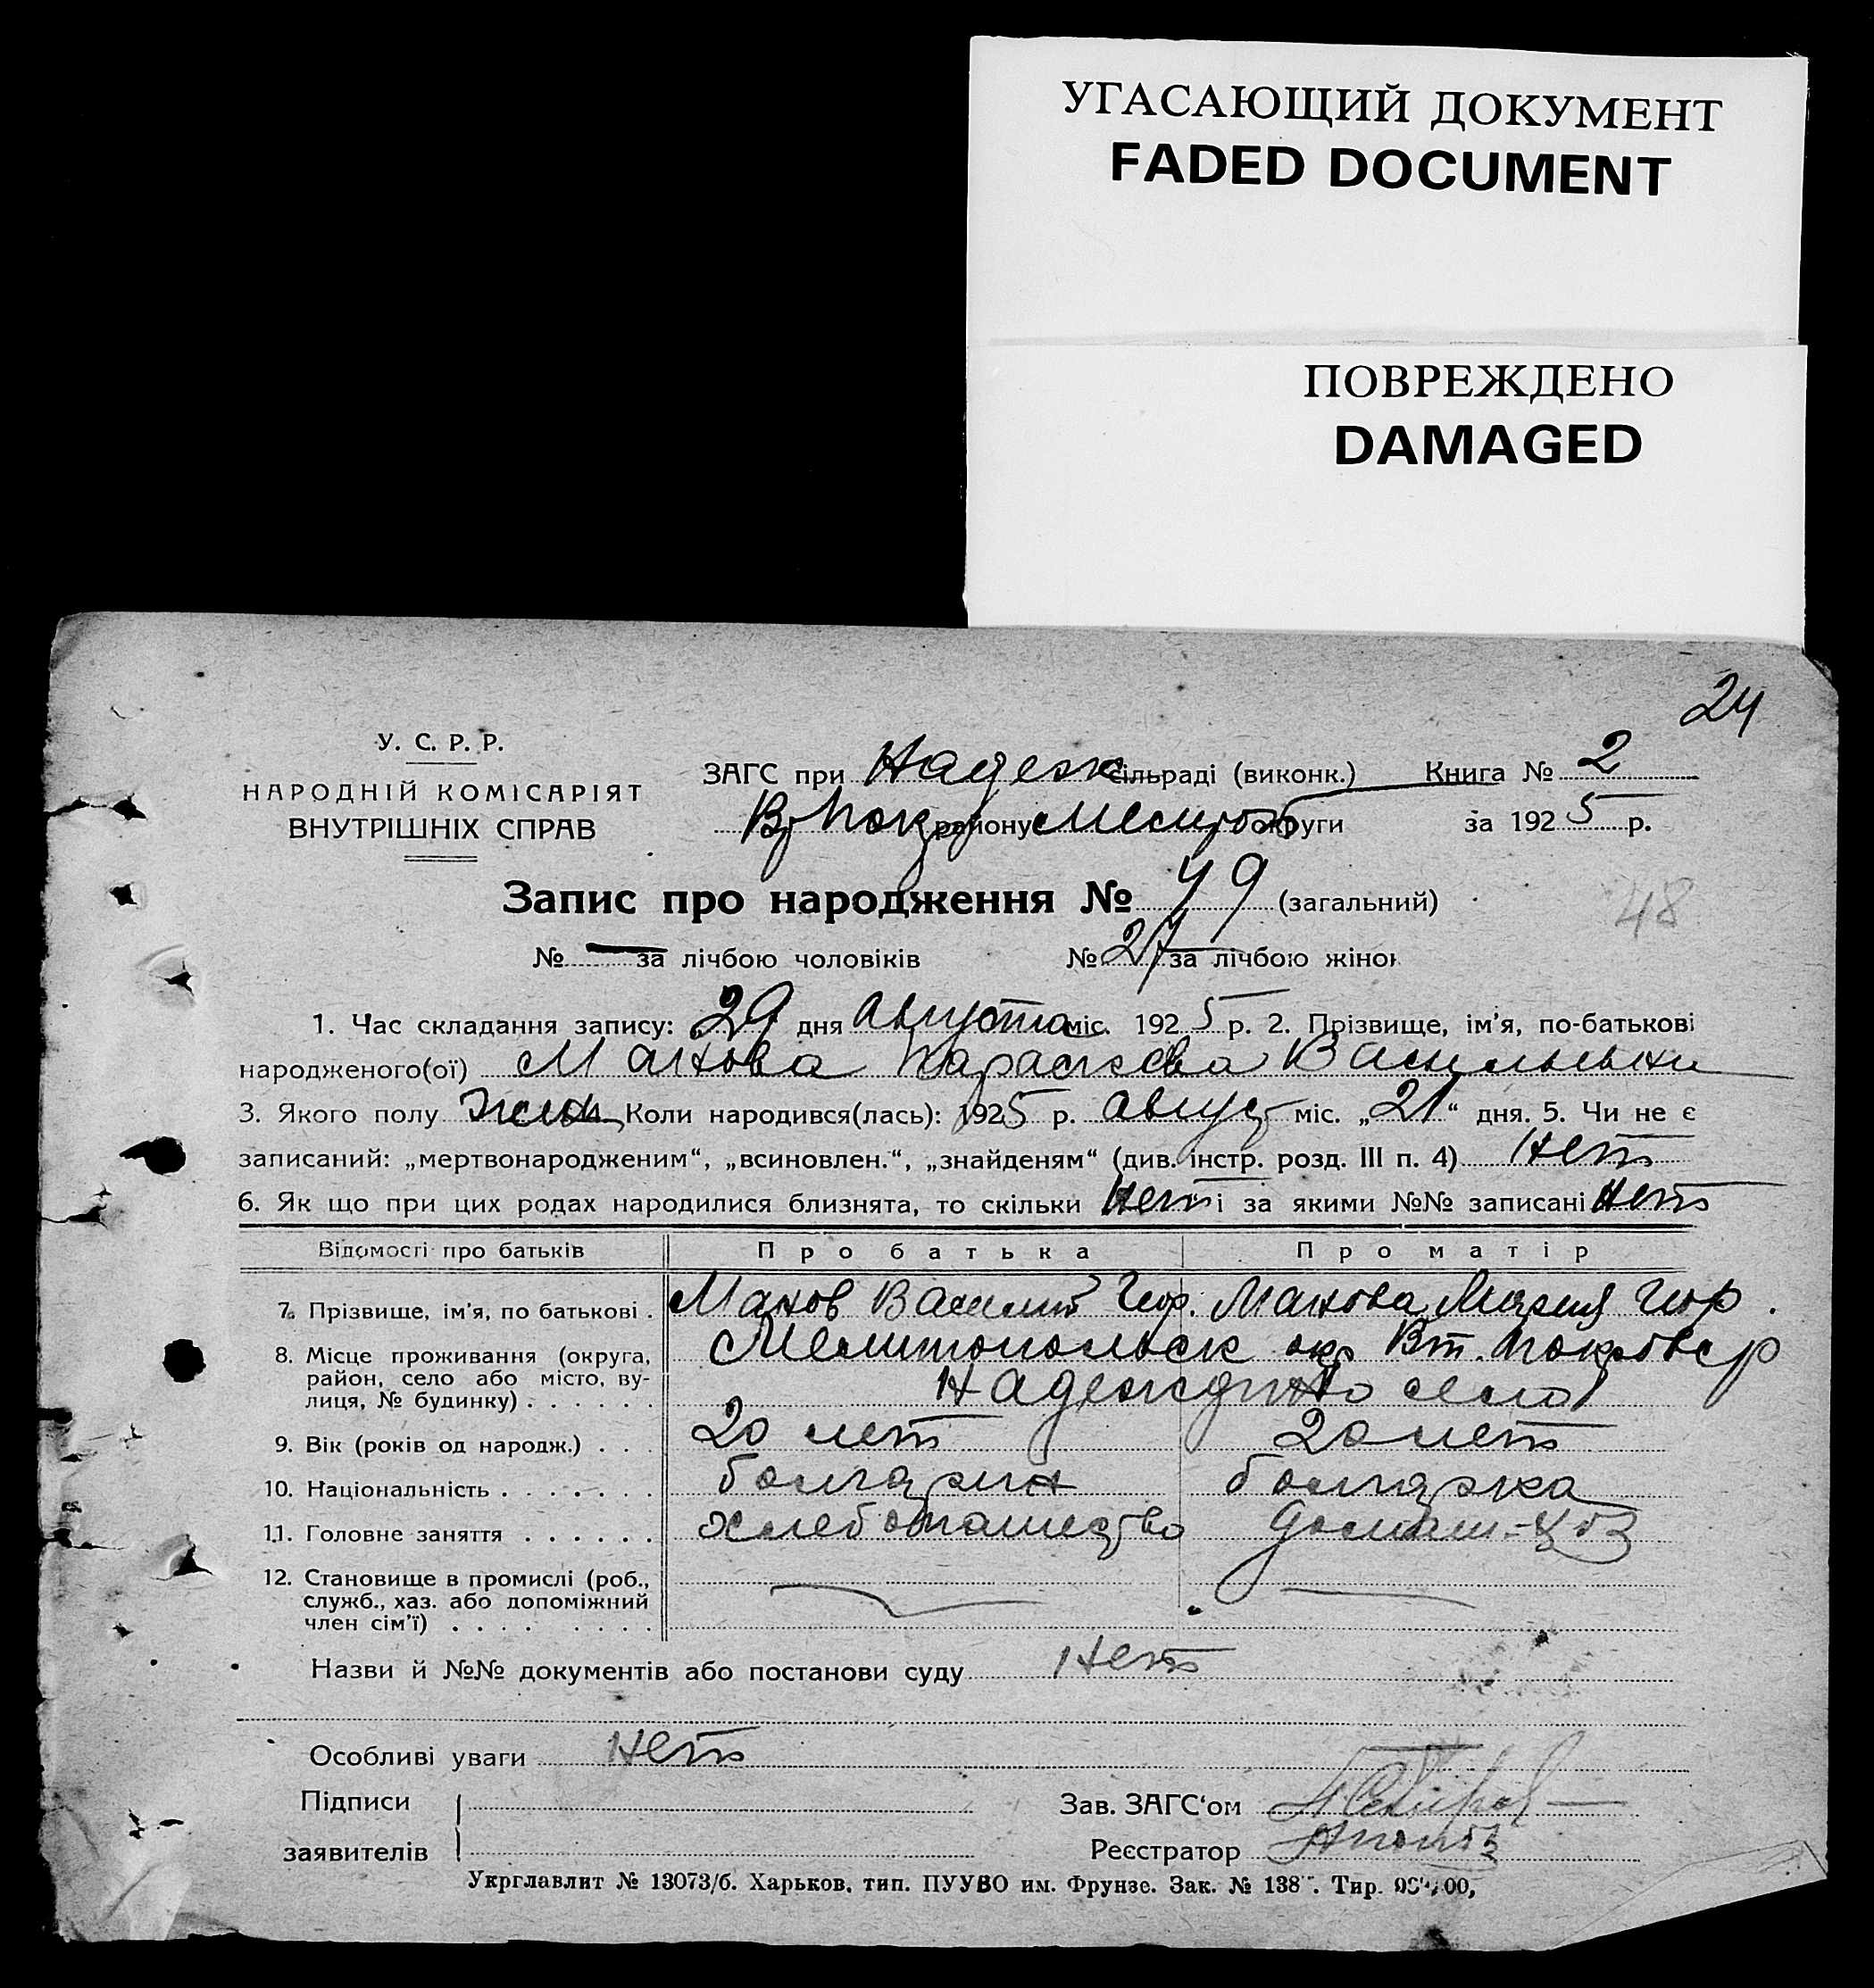 УГАСАЮЩИЙ ДОКУМЕНТ
FADED DOCUMENT
ПОВРЕЖДЕНО
DAMAGED
24
У. С. Р. Р.
НАРОДНІЙ КОМІСАРІЯТ
ВНУТРІШНІХ СПРАВ
ЗАГС при Надежд сільраді (виконк.) Книга № 2
Вт Покр району Мелитоп округи за 1925 р.
Запис про народження № 49 (загальний)
48
№ — за лічбою чоловіків № 27 за лічбою жінок
1. Час складання запису: „29 дня Августа міс. 1925 р. 2. Прізвище, ім'я, по-батькові
народженого(ої) Манова Параскева Васильевна
3. Якого полу Женск Коли народився(лась): 1925 р. Август міс. „21“ дня. 5. Чи не є
записаний: „мертвонародженим“, „всиновлен.“, „знайденям“ (див. інстр. розд. III п. 4) Нет
6. Як що при цих родах народилися близнята, то скільки Нет і за якими №№ записані Нет
Відомості про батьків Про батька Про матір
7. Прізвище, ім'я, по батькові . Манов Василий Геор. Манова Мария Геор.
8. Місце проживання (округа, Мелитопольск окр Вт. Покровс р
район, село або місто, ву- Надеждино село
лиця, № будинку) . . . . . .
9. Вік (років од народж.) . . . 20 лет 20 лет
10. Національність . . . . . . . болгарин болгарка
11. Головне заняття . . . . . . хлебопашество домаш-хоз
12. Становище в промислі (роб., — —
служб., хаз. або допоміжний
член сім'ї) . . . . . . . . .
Назви й №№ документів або постанови суду Нет
Особливі уваги Нет
Підписи
Зав. ЗАГС'ом
заявителів
Реєстратор
Укрглавлит № 13073/б. Харьков, тип. ПУУВО им. Фрунзе. Зак. № 138 . Тир.